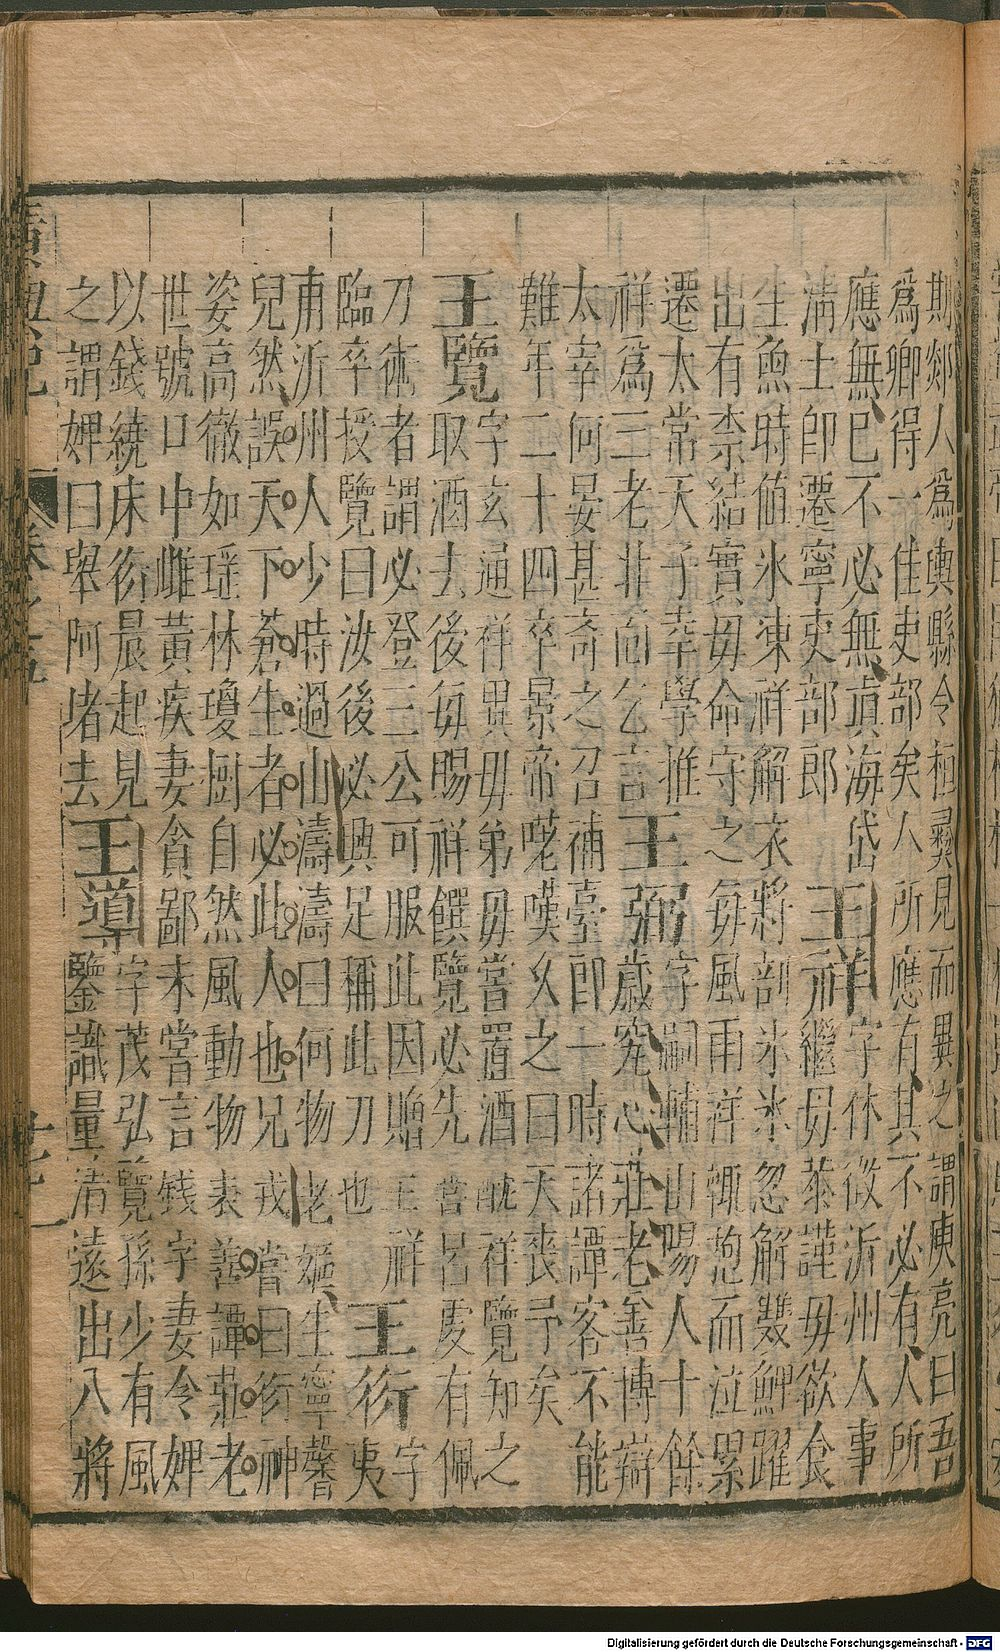 期郯人爲輿縣令桓彞見而異之謂庾亮曰吾
爲卿得一佳吏部矣人所應有其不必有人所
應無已不必無眞海岱
淸士卽遷寧吏部郎
王祥
字休徵沂州人事
繼毋恭謹毋欲食
生魚時値氷凍祥解衣將剖氷氷忽解雙鯉躍
出有柰結實毋命守之每風雨祥輒抱而泣累
遷太常天子幸學推
祥爲三老非面乞言
王弼
字嗣輔山陽人十餘
歲究心莊老善博辯
太宰何晏甚奇之召補臺郎一時諸譚客不能
難年二十四卒景帝咤嘆久之曰天喪予矣
王覽
字玄通祥異毋弟毋嘗置酒酖祥覽知之
取酒去後每賜祥饌覽必先嘗呂虔有佩
刀術者謂必登三公可服此因贈王祥
臨卒授覽曰汝後必興足稱此刀也
王衍
字夷
甫沂州人少時過山濤濤曰何物老嫗生寧馨
兒然誤天下蒼生者必此人也兄戎嘗曰衍神
姿高徹如瑶林瓊樹自然風動物表善譚莊老
世號口中雌黃疾妻貪鄙未嘗言錢字妻令婢
以錢繞床衍晨起見
之謂婢曰舉阿堵去
王導
字茂弘覽孫少有風
鑒識量淸遠出入將
Digitalisierung gefördert durch die Deutsche Forschungsgemeinschaft - DFG